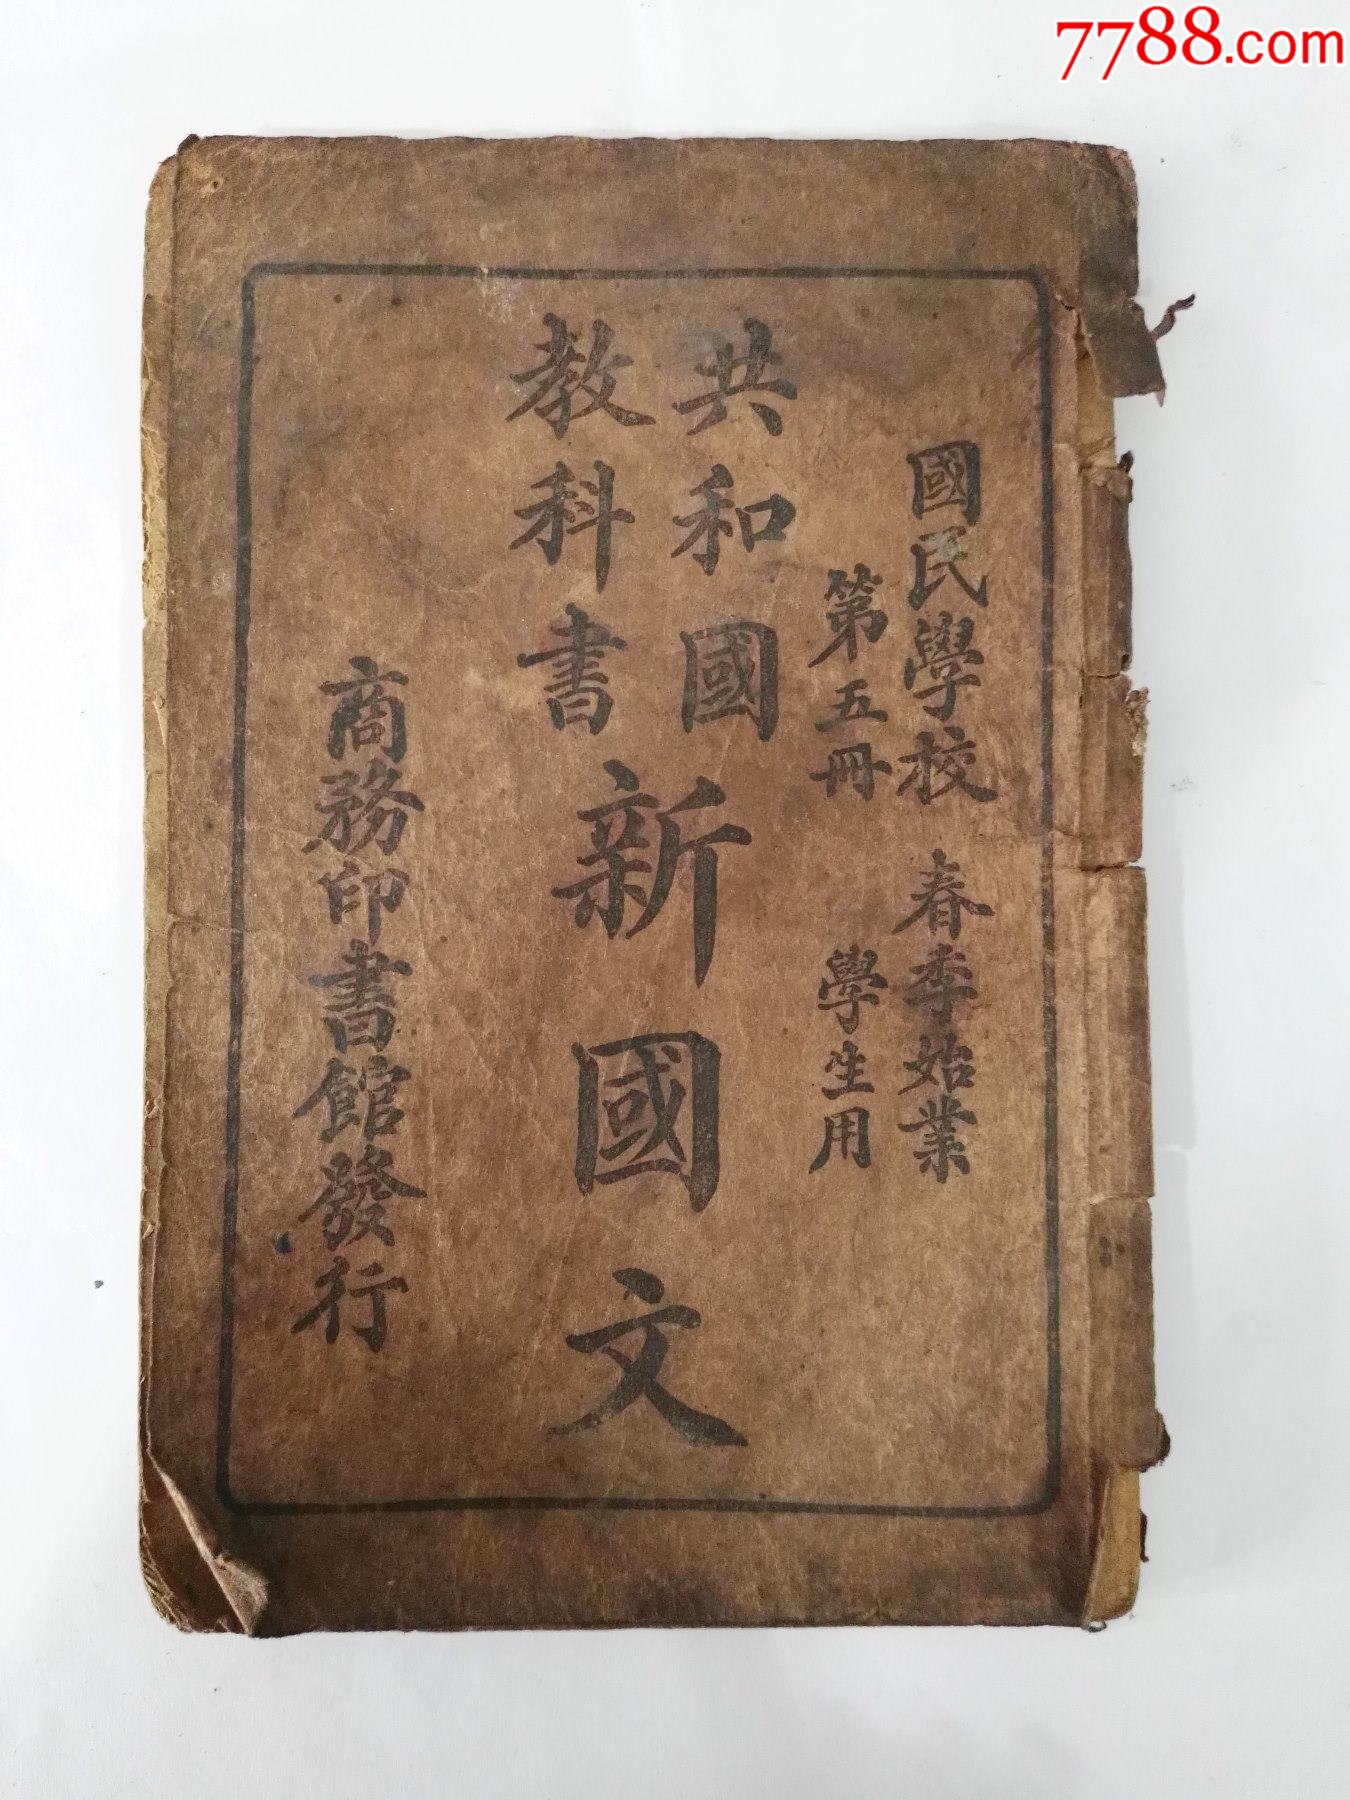 7788.com
國民學校 春季始業
第五冊 學生用
共和國
教科書
新國文
商務印書館發行